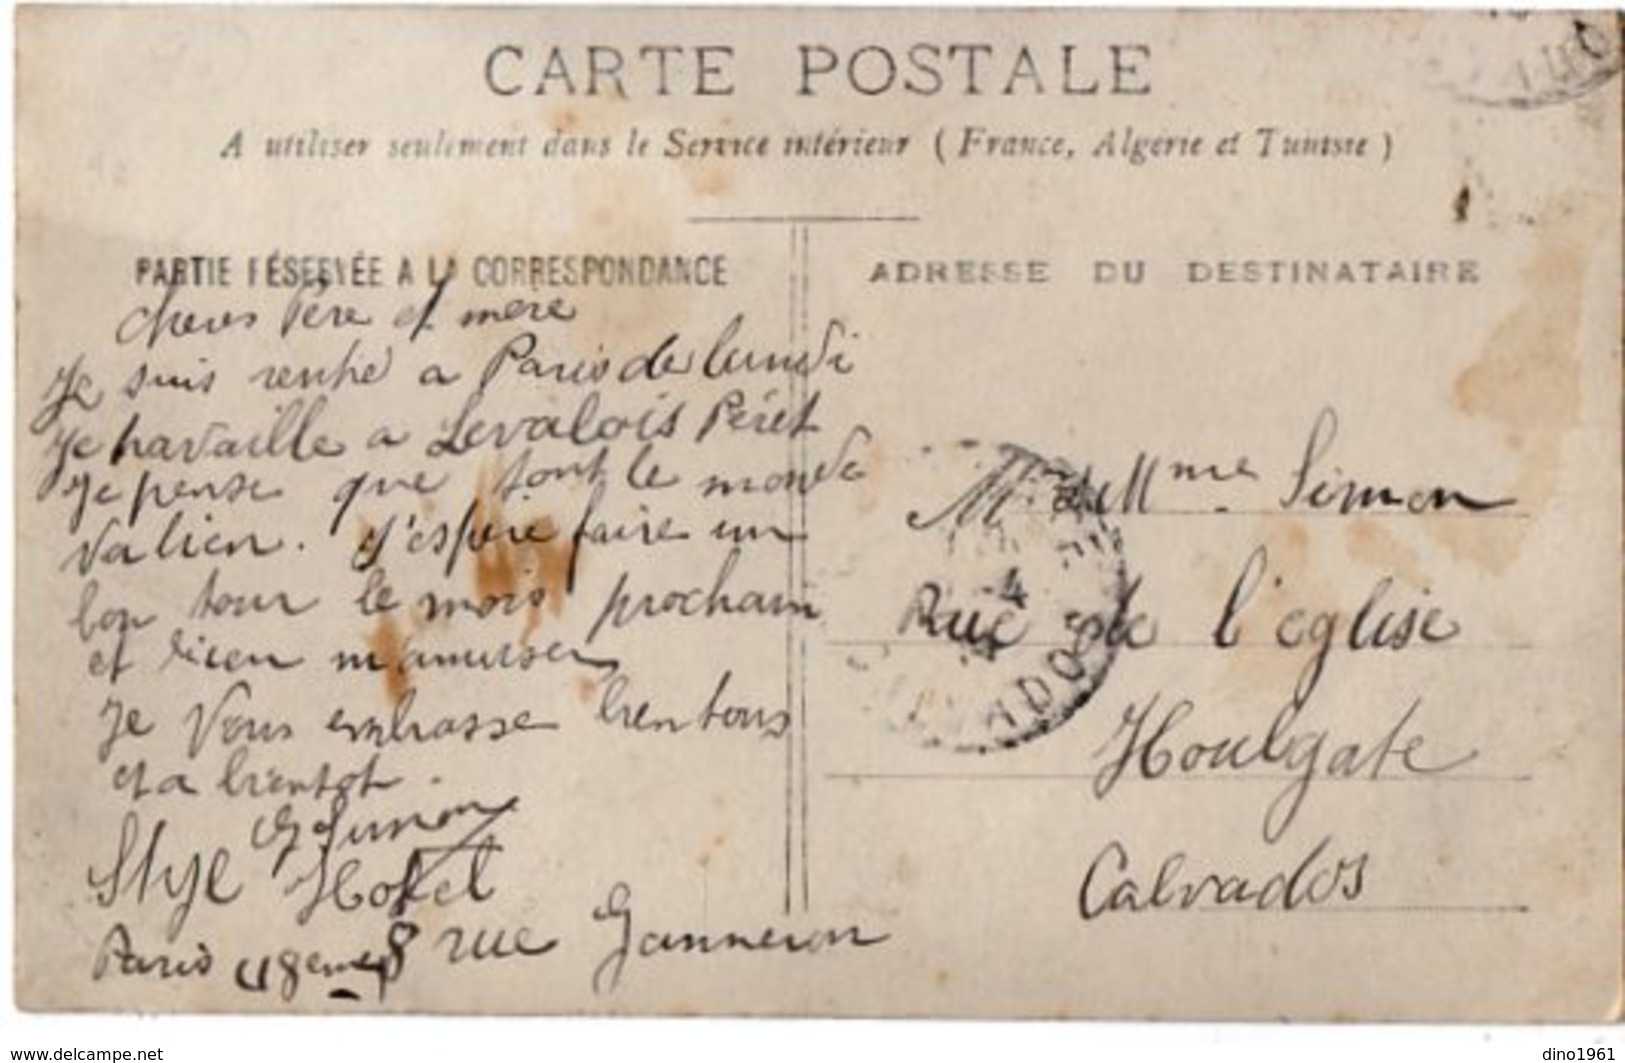 CARTE POSTALE
A utiliser seulement dans le Service intérieur ( France, Algérie et Tunisie )
PARTIE RÉSERVÉE A LA CORRESPONDANCE
chers Père et mère
Je suis rentré a Paris de lundi
Je travaille a Levalois Péret
Je pense que tout le monde
va bien. J'espère faire un
bon tour le mois prochain
et bien m'amuser
Je Vous embrasse bien tous
et a bientot.
G Simon
Style Hotel
Paris 18eme 8 rue Ganneron
ADRESSE DU DESTINATAIRE
Mr et Mme Simon
Rue de l'eglise
Houlgate
Calvados
4
www.delcampe.net
dino1961